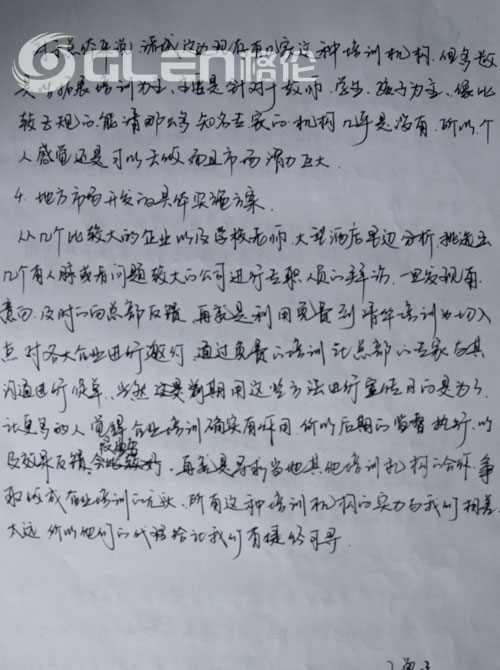 GLEN格伦
这种培训机构.但多数
培训为主.主要是针对于教师.学生.孩子为主.像比
较正规的能请那么多知名专家的机构几乎是没有.所以个
人感觉还是可以去做而且市场潜力巨大.
4.地方市场开发的具体实施方案.
从几个比较大的企业以及学校老师.大型酒店里边分析.挑选出
几个有人脉或者问题较大的公司进行专职人员的拜访.一旦发现有
意向.及时的向总部反馈.再就是利用免费到清华培训为切入
点.对各大企业进行邀约.通过免费的培训让总部的专家与其
沟通进行促单.当然这是前期用这些方法进行宣传目的是为了.
让更多的人觉得企业培训确实有作用.所以后期的监督执行.以
及效果反馈.会比较好.再就是寻求当地其他培训机构的合作.争
取做成企业培训的龙头.所有这种培训机构的实力与我们相差
太远.所以他们的代理给让我们有捷径可寻.